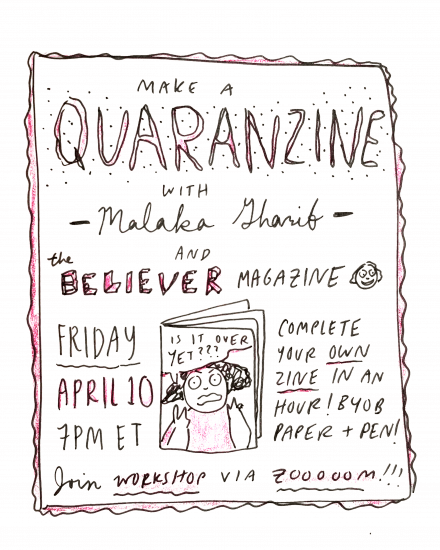 MAKE A
QUARANZINE
WITH
- Malaka Gharib -
AND
the BELIEVER MAGAZINE
FRIDAY
APRIL 10
7PM ET
IS IT OVER
YET???
COMPLETE
YOUR OWN
ZINE IN AN
HOUR! BYOB
PAPER + PEN!
Join WORKSHOP VIA ZOOOOOM!!!